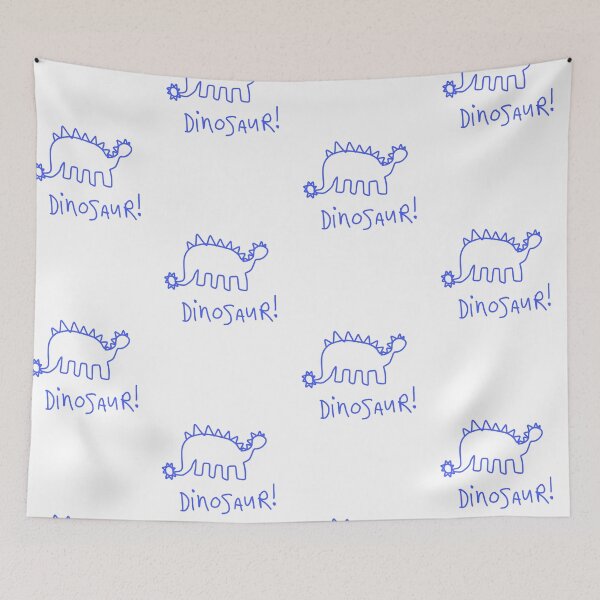 DinoSAUR!
DinoSAUR!
DinoSAUR!
DinoSAUR!
DinoSAUR!
DinoSAUR!
DinoSAUR!
DinoSAUR!
DinoSAUR!
DinoSAUR!